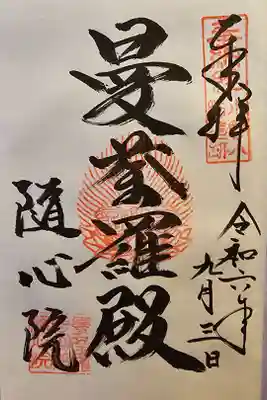 奉拝
令和六年
九月三日
曼荼羅殿
随心院